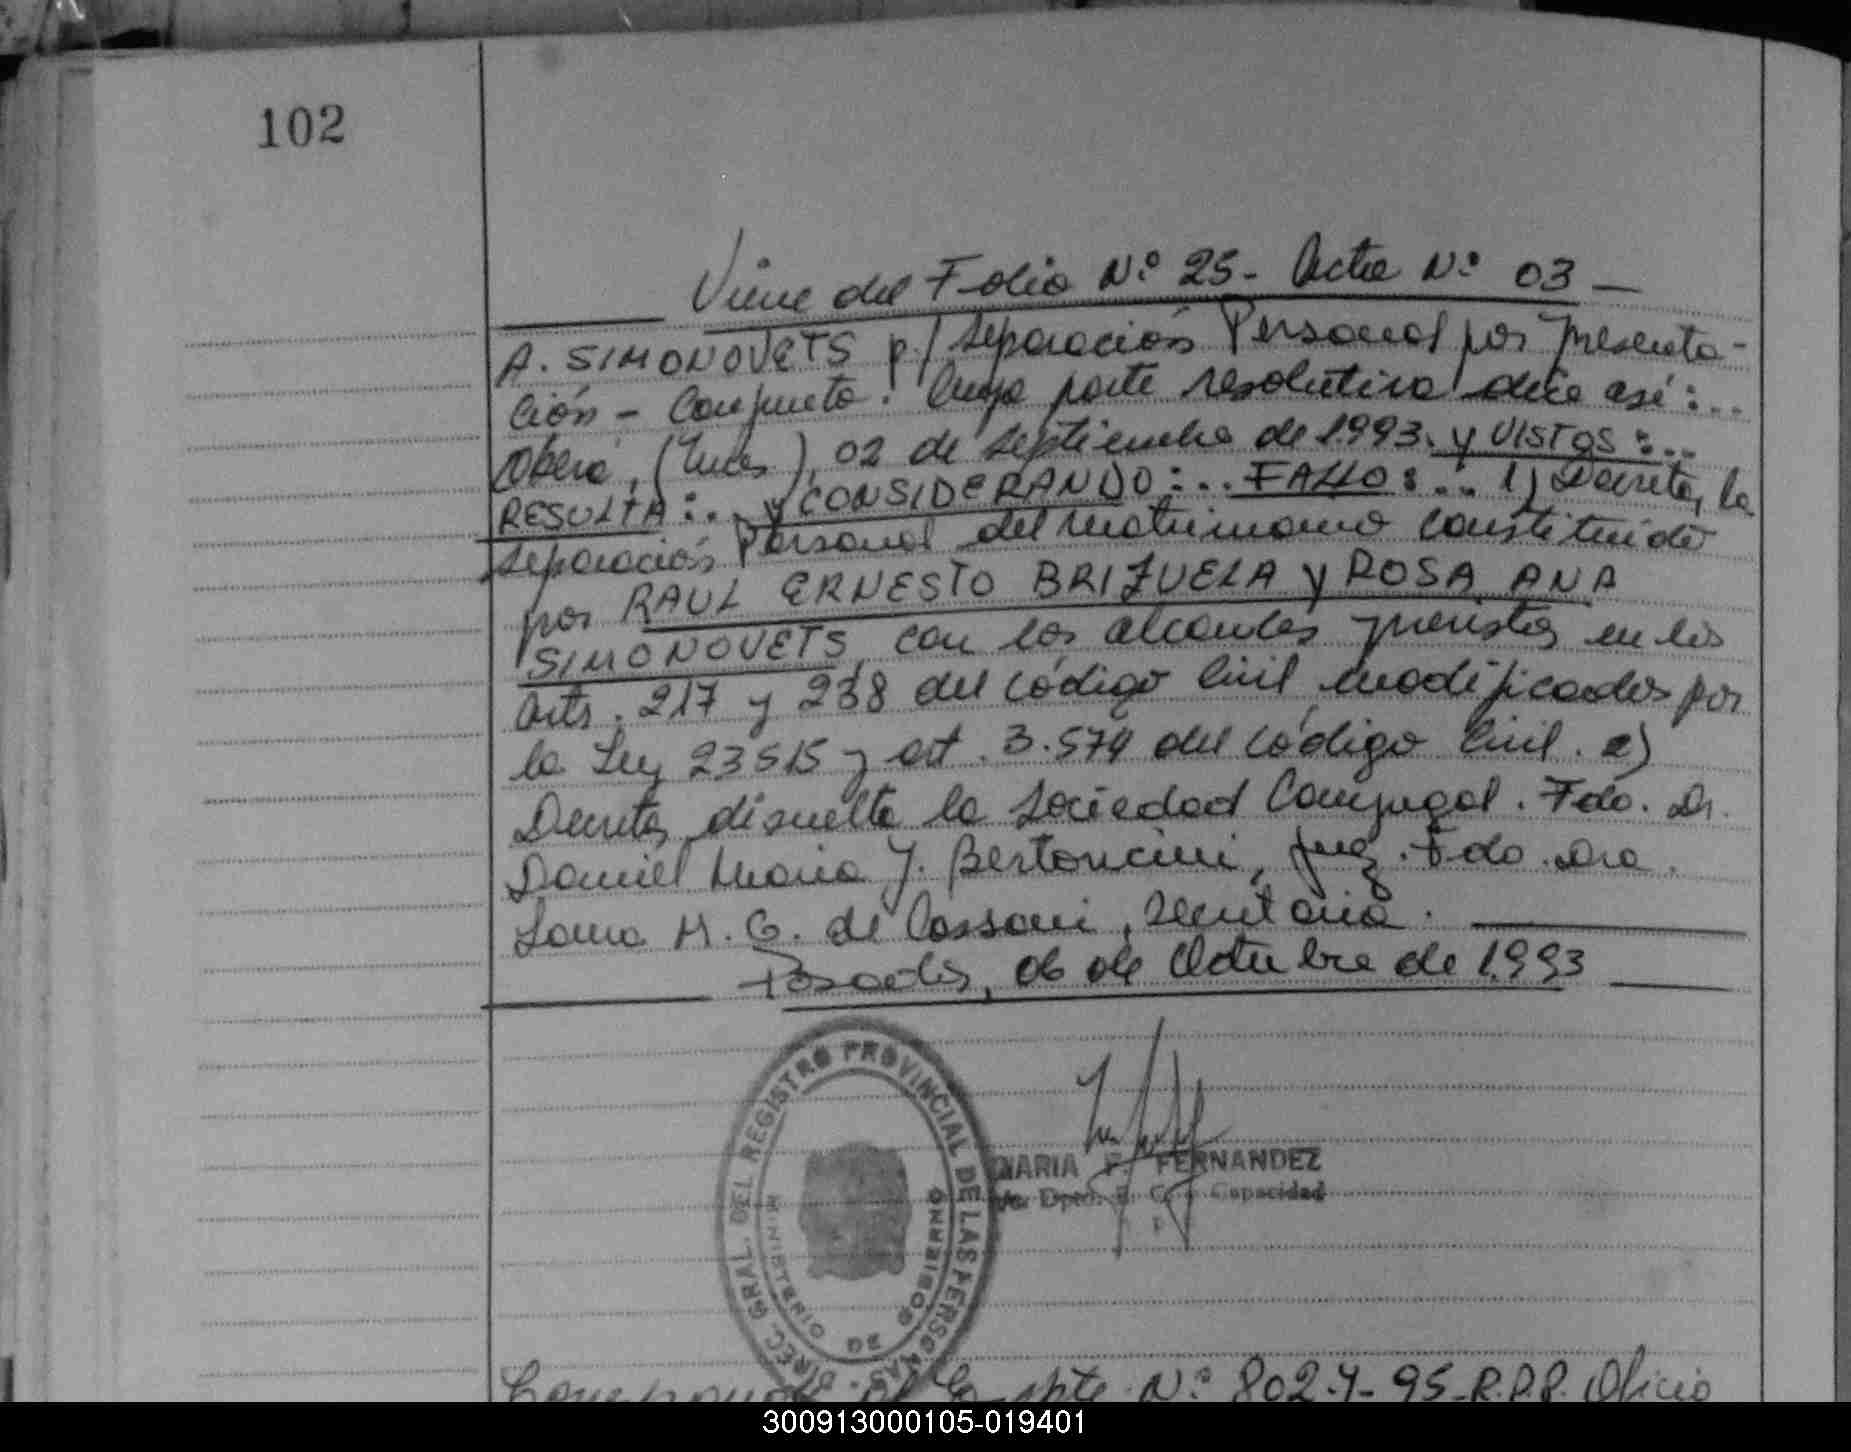 102
Viene del Folio Nº 25 - Acta Nº 03 —
A. SIMONOVETS p/ Separación Personal por Presenta-
ción - Conjunta". Cuya parte resolutiva dice así:...
Oberá, (Mnes), 02 de Septiembre de 1.993. y VISTOS:...
RESULTA:... y CONSIDERANDO:... FALLO:... 1) Decretar la
Separación Personal del matrimonio constituido
por RAUL ERNESTO BRIZUELA y ROSA ANA
SIMONOVETS, con los alcances previstos en los
arts. 217 y 238 del Código Civil, modificados por
la Ley 23515 y art. 3.574 del Código Civil. 2)
Decretar disuelta la Sociedad Conyugal. Fdo. Dr.
Daniel Mario J. Bertoncini, Juez. Fdo. Dra.
Laura M. G. de Cassoni, Secretaria.
Posadas, 06 de Octubre de 1.993
DIREC. GRAL. DEL REGISTRO PROVINCIAL DE LAS PERSONAS
MINISTERIO DE GOBIERNO
MARIA F. FERNANDEZ
Dpto. E. C. y Capacidad
Nº 802-Y-95-R.P.P. Oficio
300913000105-019401